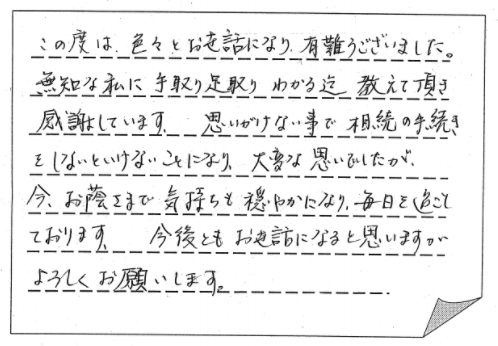 この度は、色々とお世話になり、有難うございました。
無知な私に手取り足取り わかる迄 教えて頂き
感謝しています。 思いがけない事で相続の手続き
をしないといけないことになり、大変な思いでしたが、
今、お蔭さまで気持ちも穏やかになり、毎日を過ごし
ております。 今後ともお世話になると思いますが
よろしくお願いします。